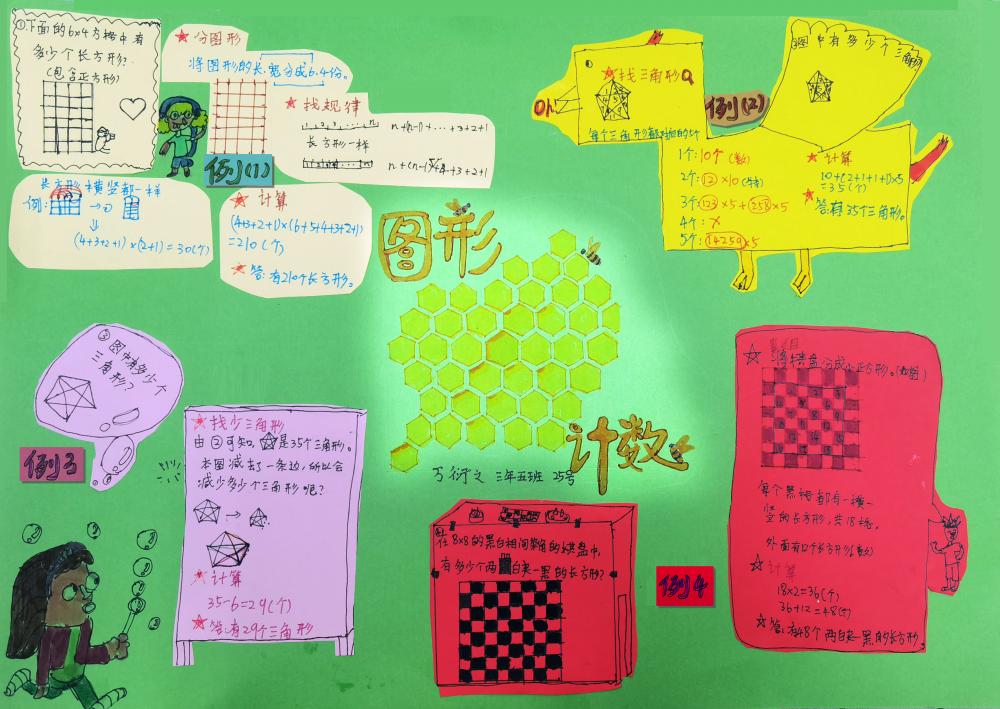 ①.下面的6×4方格中有
多少个长方形?
(包含正方形)
★ 分图形
将图形的长、宽分成6.4份。
★ 找规律
n+(n-1)+…+3+2+1
长方形一样
例(1)
长方形横竖都一样
例:
(4+3+2+1)×(2+1)=30(个)
★ 计算
(4+3+2+1)×(6+5+4+3+2+1)
=210(个)
★ 答:有210个长方形。
图形
计数
三年五班 25号
★找三角形
例(2)
图中有多少个三角形
1个:10个
2个:12×10
3个:123×5+258×5
4个:×
5个:14259×5
★ 计算
10+(2+1+1+1)×5
=35(个)
★答:有35个三角形。
③图中有多少个
三角形?
例3
★找少三角形
由②可知,是35个三角形。
本图减去了一条边,所以会
减少多少个三角形呢?
★计算
35-6=29(个)
★答:有29个三角形
在8×8的黑白相间的棋盘中,
有多少个两白夹一黑的长方形?
例4
☆将棋盘分成小正方形。
每个黑格都有一横一
竖的长方形,共18格。
☆计算
18×2=36(个)
36+12=48(个)
☆答:有48个两白夹一黑的长方形。